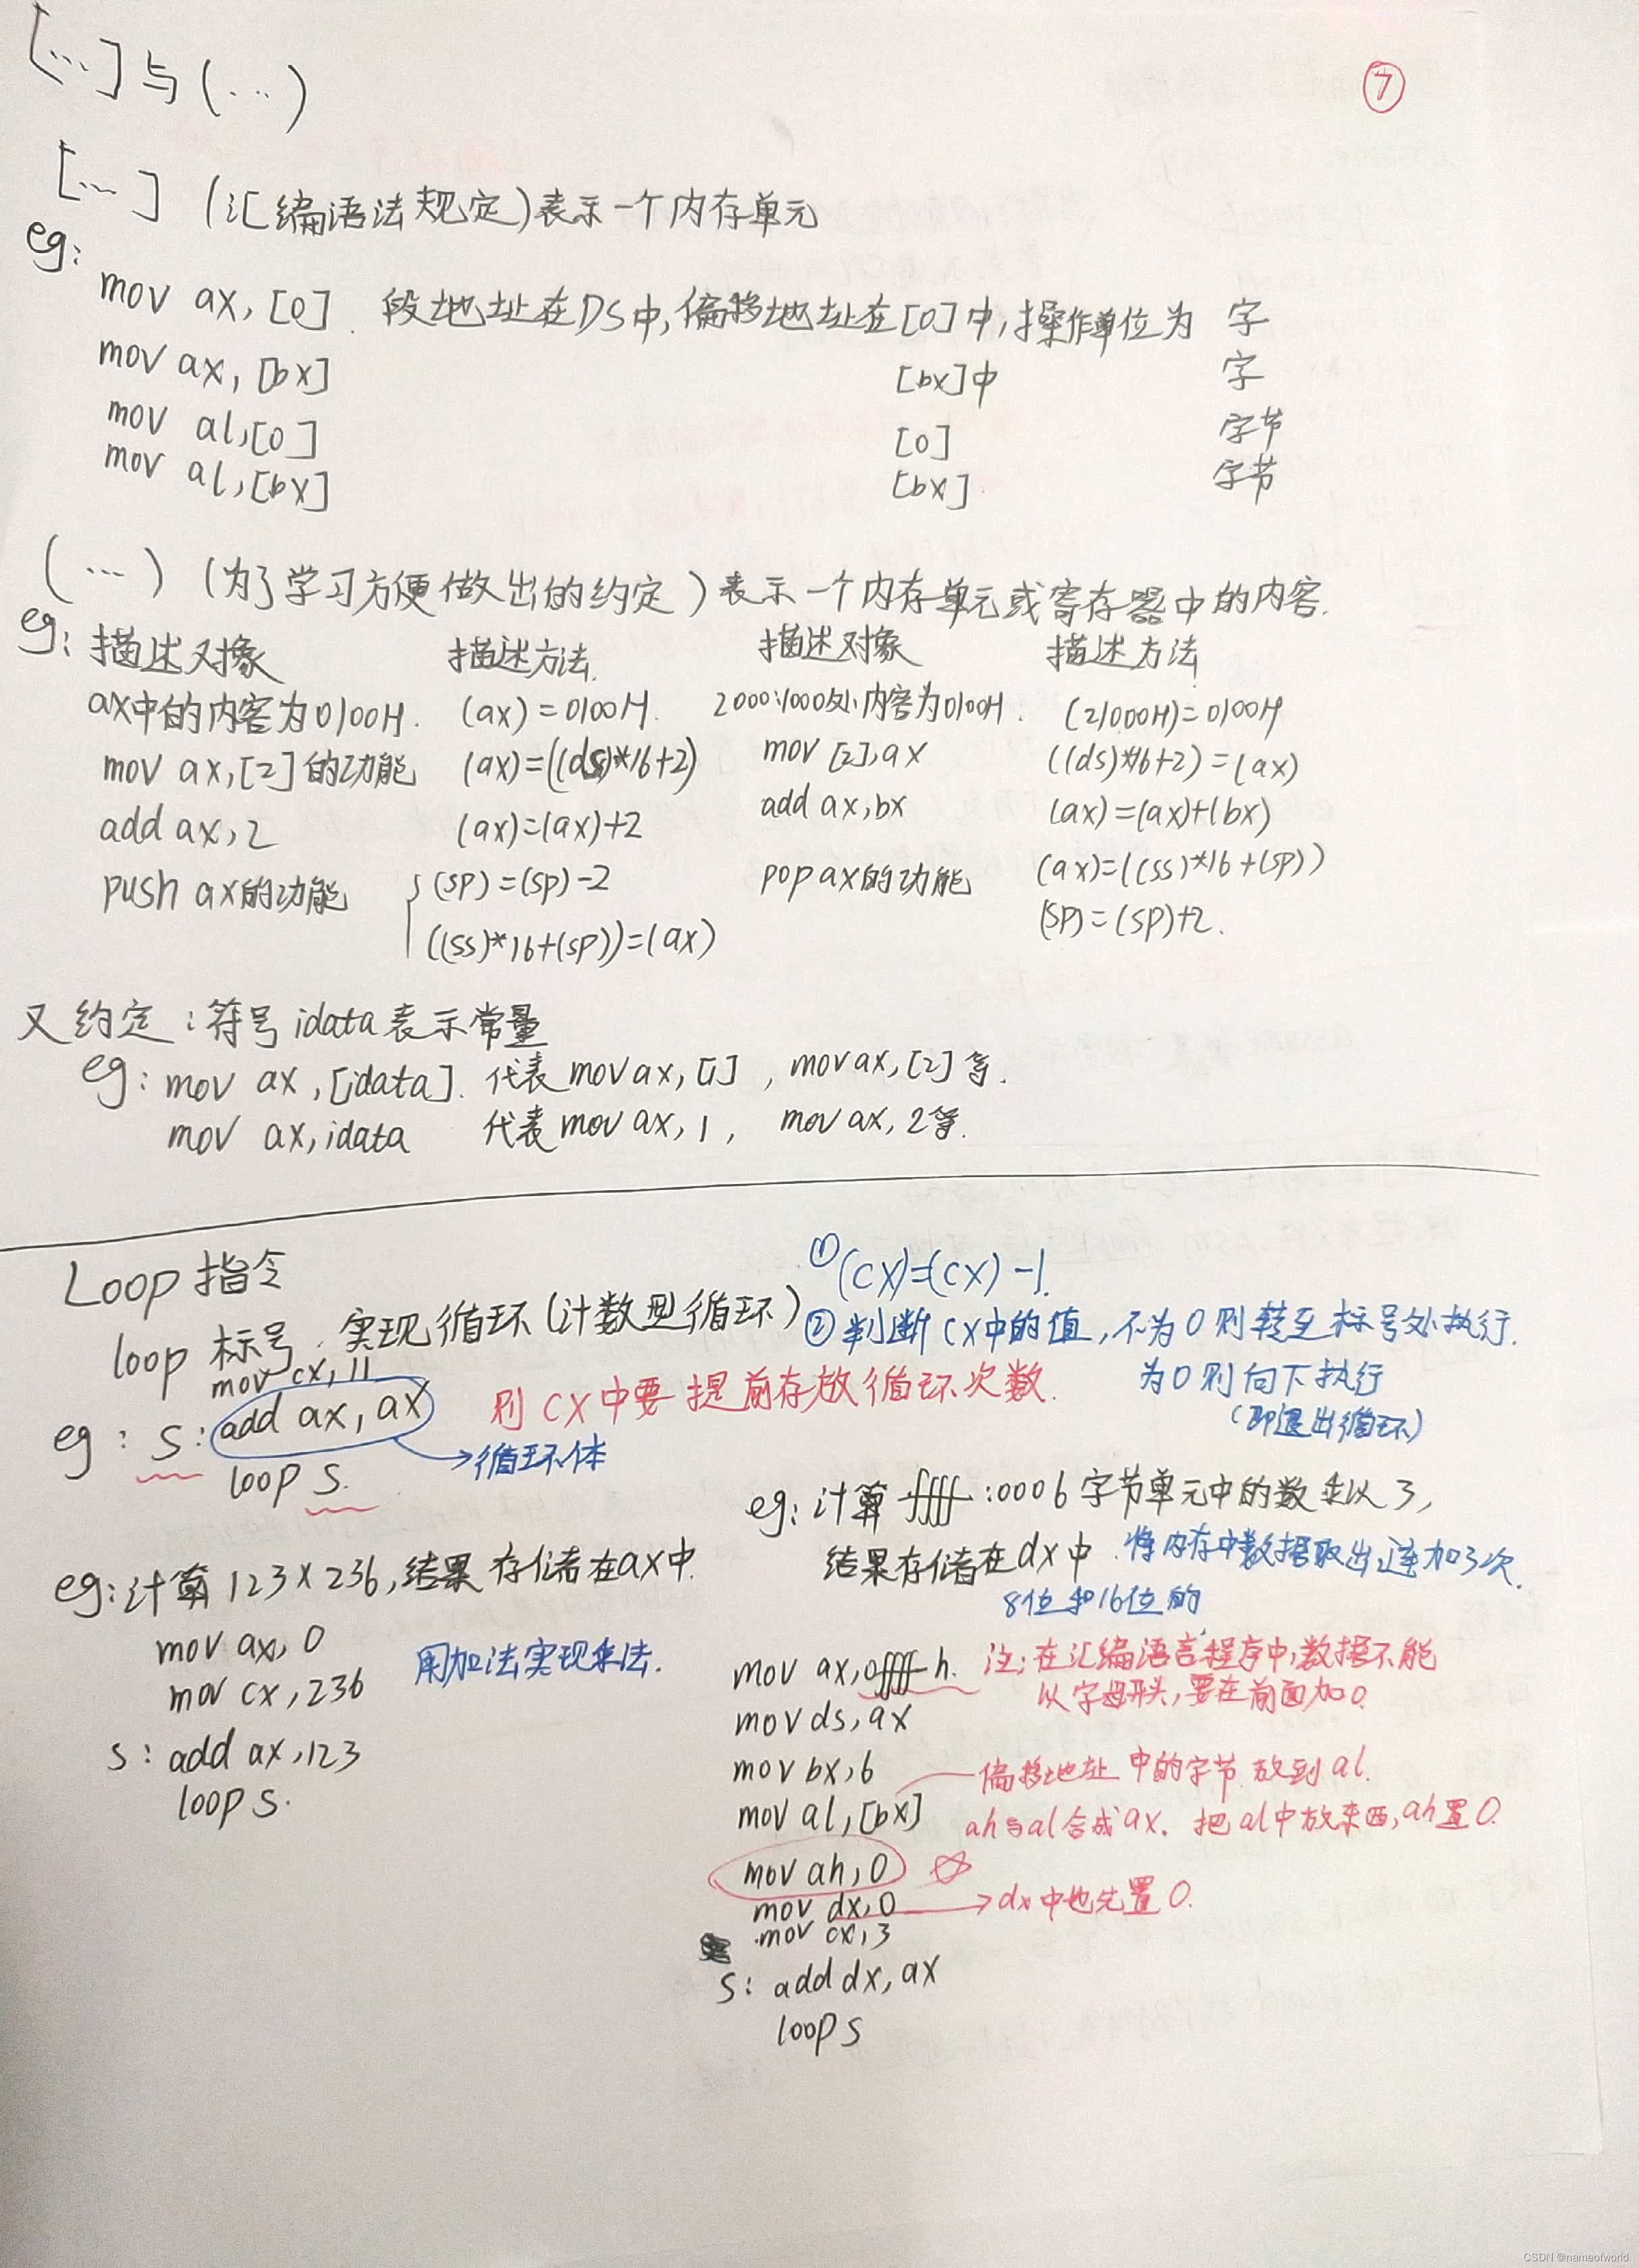 [...]与(...)
⑦
[...] (汇编语法规定)表示一个内存单元
eg:
mov ax,[0] 段地址在DS中,偏移地址在[0]中,操作单位为 字
mov ax,[bx] [bx]中 字
mov al,[0] [0] 字节
mov al,[bx] [bx] 字节
(...) (为了学习方便做出的约定)表示一个内存单元或寄存器中的内容.
eg: 描述对象 描述方法. 描述对象 描述方法
ax中的内容为0100H. (ax)=0100H. 2000:1000处内容为0100H. (21000H)=0100H
mov ax,[2]的功能 (ax)=((ds)*16+2) mov [2],ax ((ds)*16+2)=(ax)
add ax,2 (ax)=(ax)+2 add ax,bx (ax)=(ax)+(bx)
push ax的功能 (sp)=(sp)-2 pop ax的功能 (ax)=((ss)*16+(sp))
((ss)*16+(sp))=(ax) (sp)=(sp)+2.
又约定:符号idata表示常量
eg: mov ax,[idata]. 代表mov ax,[1] , mov ax,[2]等.
mov ax,idata 代表mov ax,1, mov ax,2等.
Loop指令
①(cx)=(cx)-1.
loop 标号. 实现循环(计数型循环) ②判断cx中的值,不为0则转至标号处执行.
为0则向下执行
(即退出循环)
mov cx,11
则cx中要提前存放循环次数.
eg: s: add ax,ax
→循环体
loop s.
eg:计算123×236,结果存储在ax中.
mov ax,0
用加法实现乘法.
mov cx,236
s: add ax,123
loop s.
eg:计算ffff:0006字节单元中的数乘以3,
结果存储在dx中. 将内存中数据取出,连加3次.
8位和16位的
mov ax,0ffffh. 注:在汇编语言程序中,数据不能
以字母开头,要在前面加0.
mov ds,ax
mov bx,6 偏移地址中的字节放到al.
mov al,[bx] ah与al合成ax. 把al中放东西,ah置0.
mov ah,0 ☆
mov dx,0 →dx中也先置0.
mov cx,3
s: add dx,ax
loop s
CSDN @nameofworld